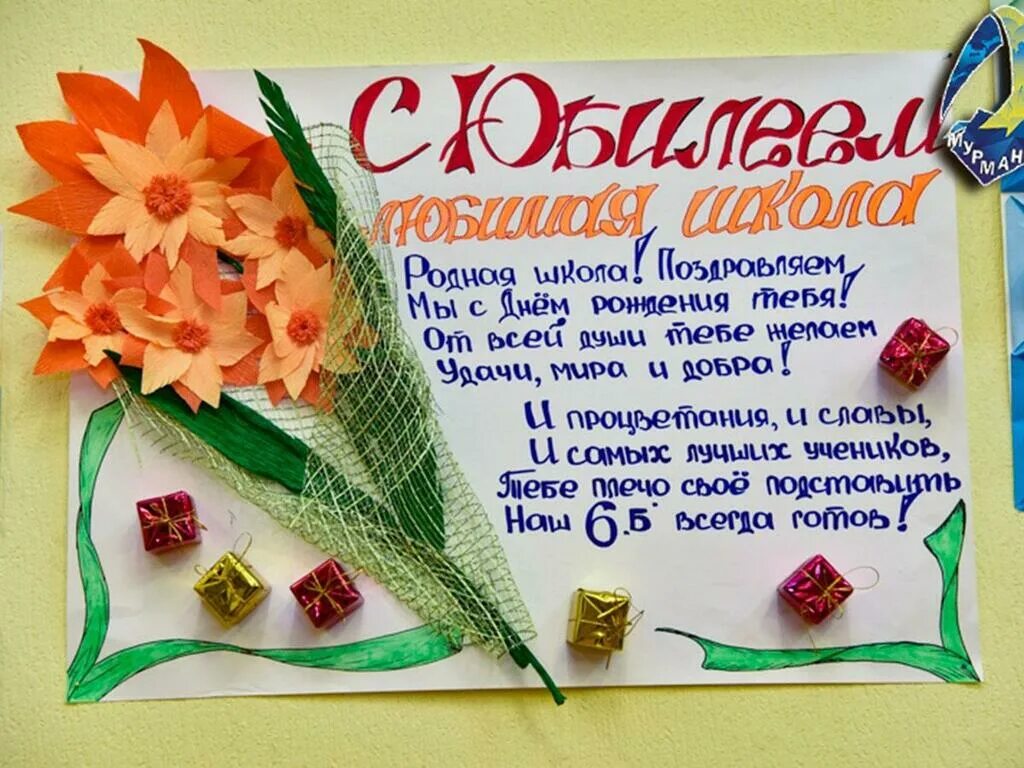 С Юбилеем
любимая школа
Родная школа! Поздравляем
Мы с Днём рождения тебя!
От всей души тебе желаем
Удачи, мира и добра!
И процветания, и славы,
И самых лучших учеников,
Тебе плечо своё подставить
Наш 6.Б всегда готов!
МУРМАН